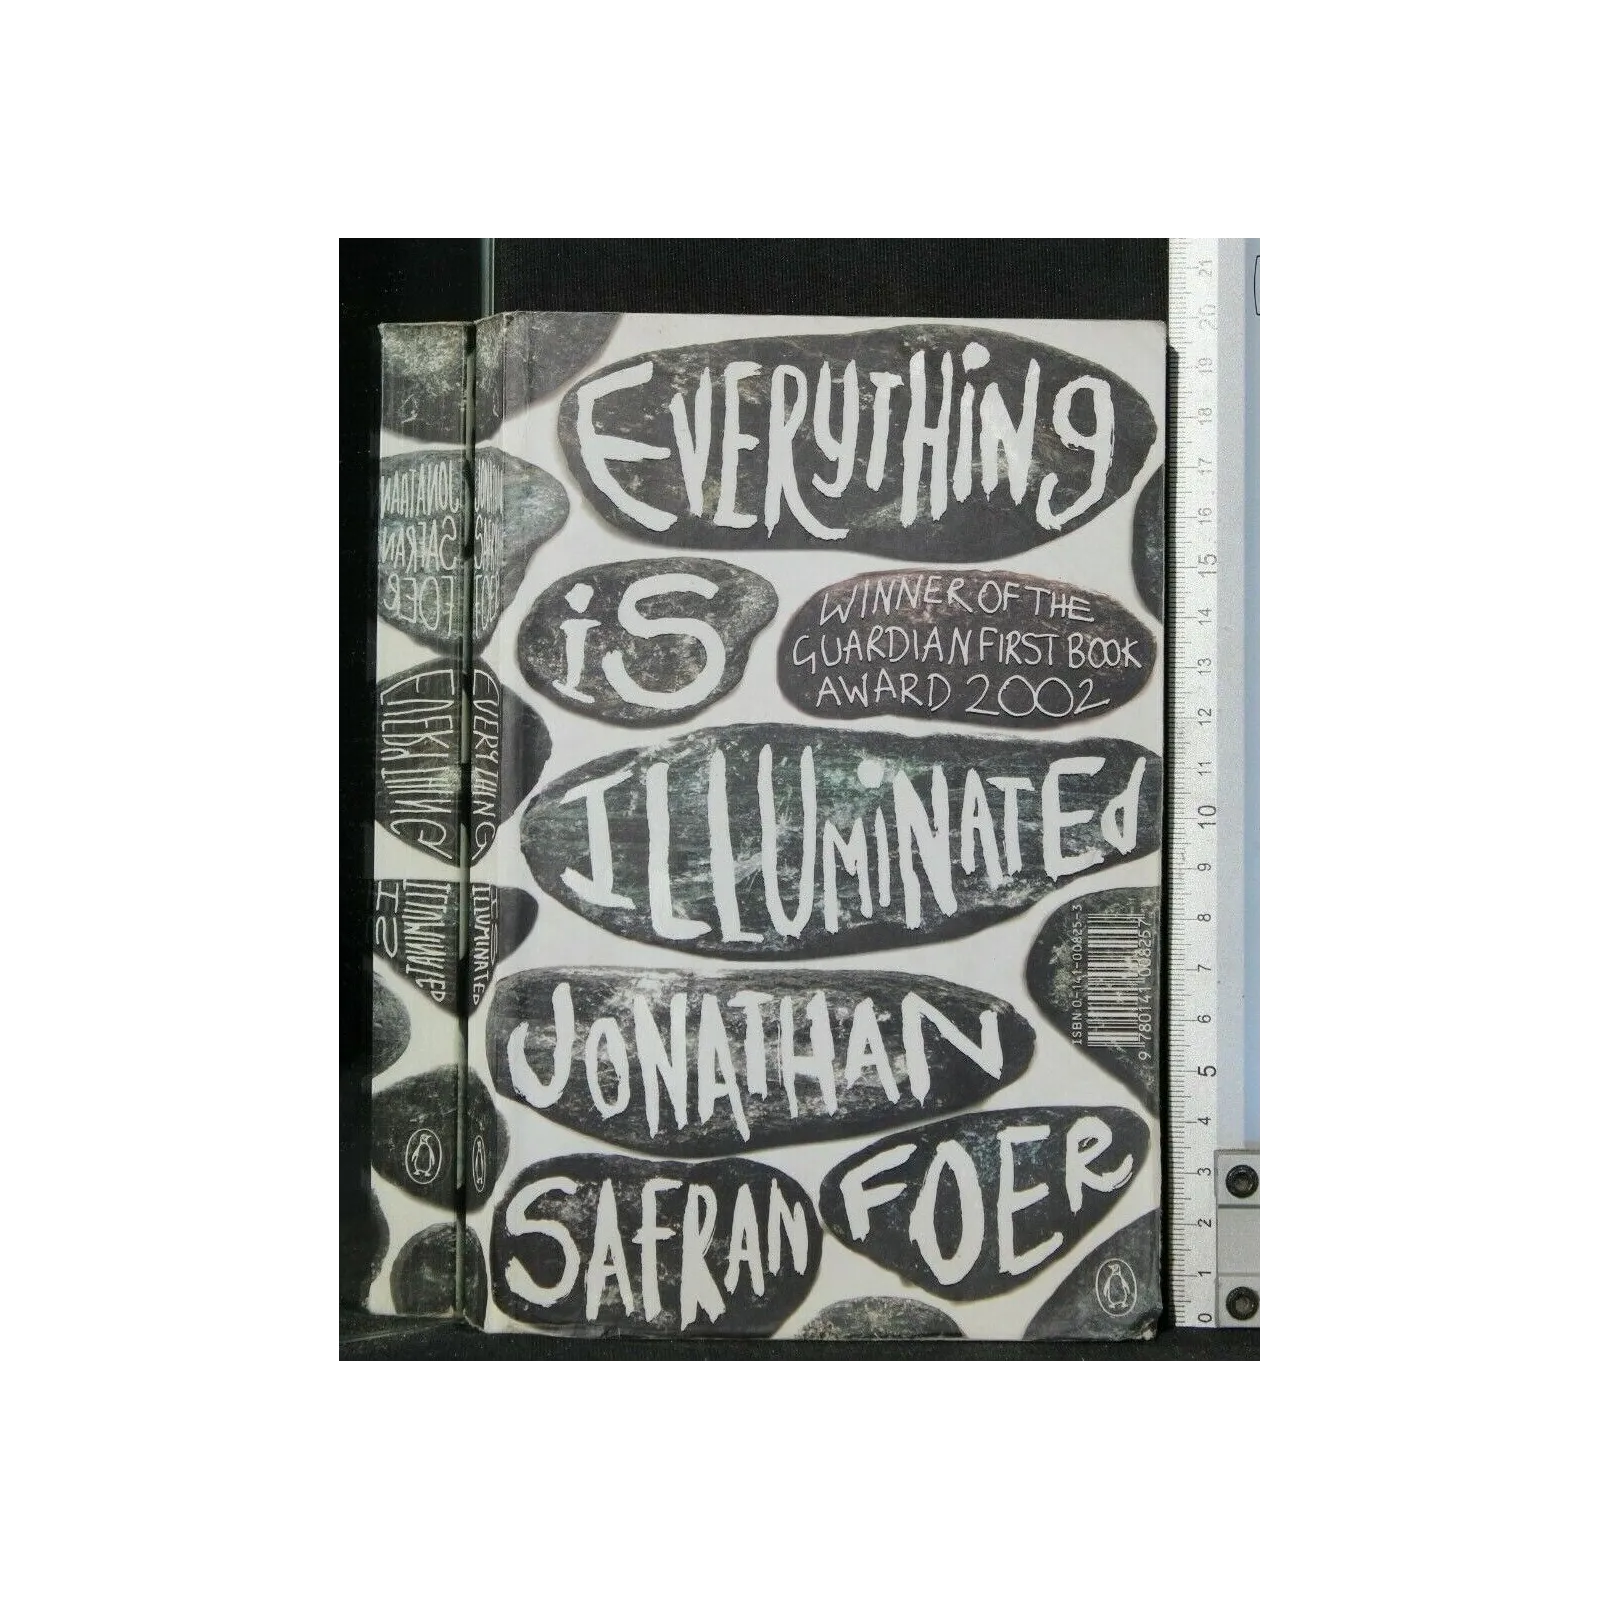 EVERYTHING
iS
WINNER OF THE
GUARDIAN FIRST BOOK
AWARD 2002
ILLUMiNATEd
JONATHAN
SAFRAN
FOER
ISBN 0-141-00825-3
9 780141 008257
JONATHAN
SAFRAN
FOER
EVERYTHING
IS
ILLUMINATED
21
20
19
18
17
16
15
14
13
12
11
10
9
8
7
6
5
4
3
2
1
0